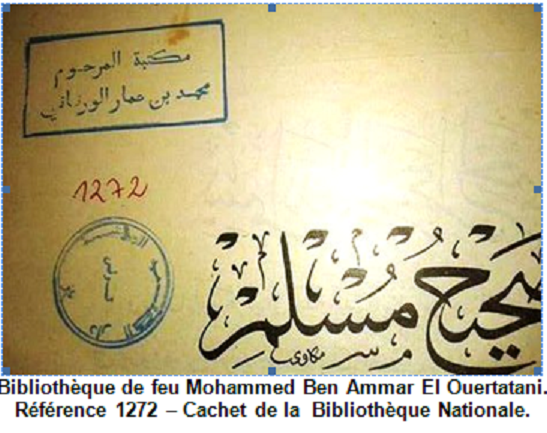 مكتبة المرحوم
محمد بن عمار الورتاني
1272
صحيح مسلم
مكاوي
Bibliothèque de feu Mohammed Ben Ammar El Ouertatani.
Référence 1272 – Cachet de la Bibliothèque Nationale.